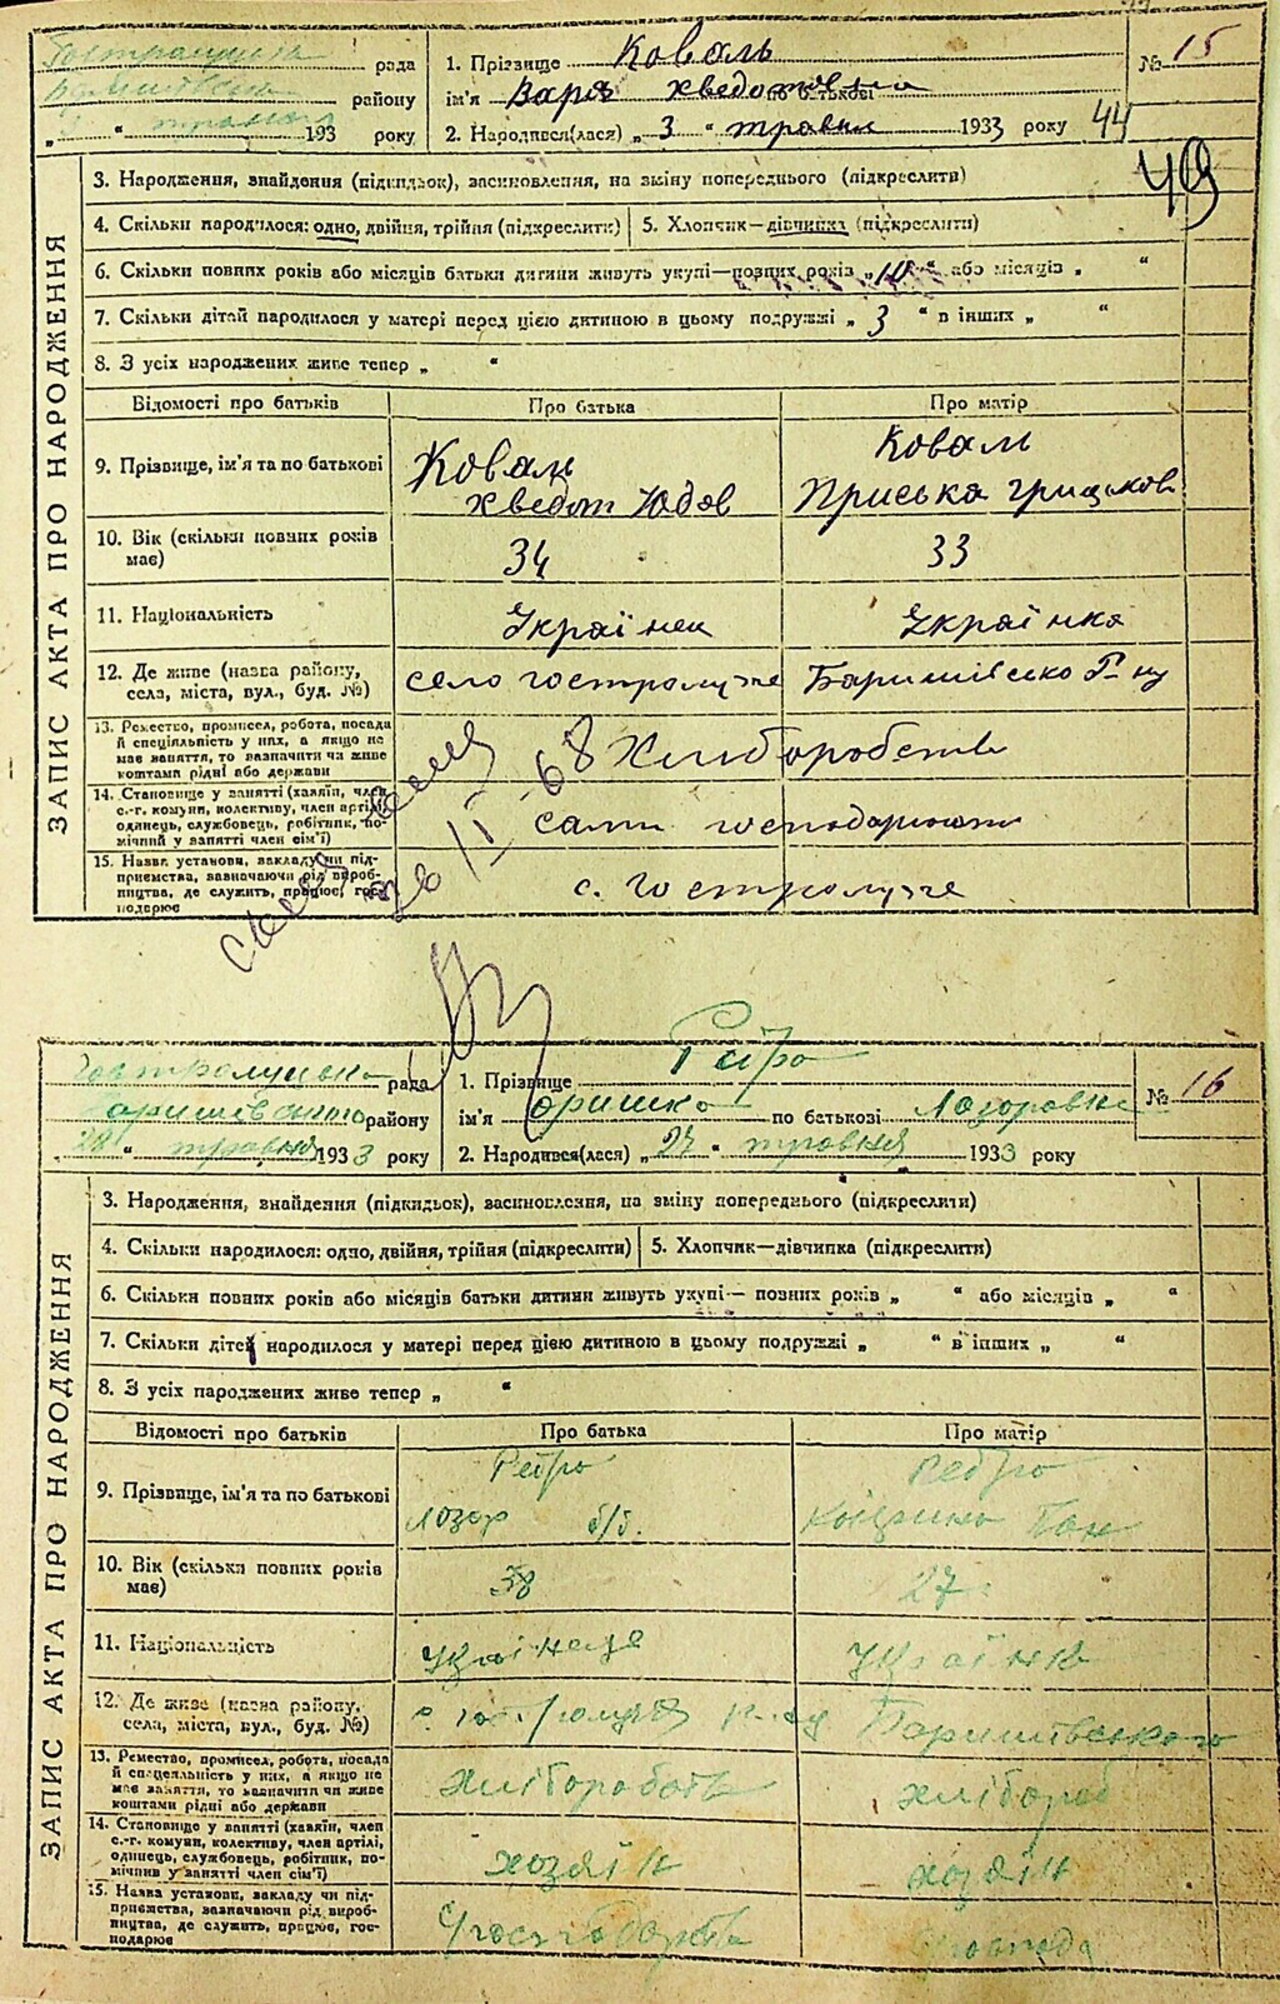 Гостролуцька рада
району
" травня 193 року
1. Прізвище Коваль
ім'я Варя Хведотовна по батькові
2. Народився(лася) „ 3 " травня 1933 року
№ 15
44
49
ЗАПИС АКТА ПРО НАРОДЖЕННЯ
3. Народження, знайдення (підкидьок), засиновлення, на зміну попереднього (підкреслити)
4. Скільки народилося: одно, двійня, трійня (підкреслити)
5. Хлопчик—дівчинка (підкреслити)
6. Скільки повних років або місяців батьки дитини живуть укупі—повних років „ " або місяців „ "
7. Скільки дітей народилося у матері перед цією дитиною в цьому подружжі „ 3 " в інших „ "
8. З усіх народжених живе тепер „ "
Відомості про батьків
Про батька
Про матір
9. Прізвище, ім'я та по батькові
Коваль
Хведот Юдов
Коваль
Приська Грицьков
10. Вік (скільки повних років
має)
34
33
11. Національність
Українец
Українка
12. Де живе (назва району,
села, міста, вул., буд. №)
село гостролуже
Баришівсько Р-ну
13. Ремество, промисел, робота, посада
й спеціяльність у них, а якщо не
має заняття, то зазначити чи живе
коштами рідні або держави
Хлиборобств
14. Становище у занятті (хазяїн, член
с.-г. комуни, колективу, член артілі,
одинець, службовець, робітник, по-
мічний у занятті член сім'ї)
сами господарюют
15. Назва установи, закладу чи під-
приємства, зазначаючи рід вироб-
ництва, де служить, працює, гос-
подарює
с. Гостролуже
68
Гостролуцька рада
Баришівського району
28 " травня 1933 року
1. Прізвище Ребро
ім'я Оришка по батькові Лазоровна
2. Народився(лася) „ 27 " травня 1933 року
№ 16
ЗАПИС АКТА ПРО НАРОДЖЕННЯ
3. Народження, знайдення (підкидьок), засиновлення, на зміну попереднього (підкреслити)
4. Скільки народилося: одно, двійня, трійня (підкреслити)
5. Хлопчик—дівчинка (підкреслити)
6. Скільки повних років або місяців батьки дитини живуть укупі— повних років „ " або місяців „ "
7. Скільки дітей народилося у матері перед цією дитиною в цьому подружжі „ " в інших „ "
8. З усіх народжених живе тепер „ "
Відомості про батьків
Про батька
Про матір
9. Прізвище, ім'я та по батькові
Ребро
Лозор б/б.
Ребро
10. Вік (скільки повних років
має)
38
27
11. Національність
Українець
Українк
12. Де живе (назва району,
села, міста, вул., буд. №)
Баришівського
13. Ремество, промисел, робота, посада
й спецеяльність у них, а якщо не
має заняття, то зазначити чи живе
коштами рідні або держави
хліборобств
хлібороб
14. Становище у занятті (хазяїн, член
с.-г. комуни, колективу, член артілі,
одинець, службовець, робітник, по-
мічник у занятті член сім'ї)
хозяїн
хозяїн
15. Назва установи, закладу чи під-
приємства, зазначаючи рід вироб-
ництва, де служить, працює, гос-
подарює